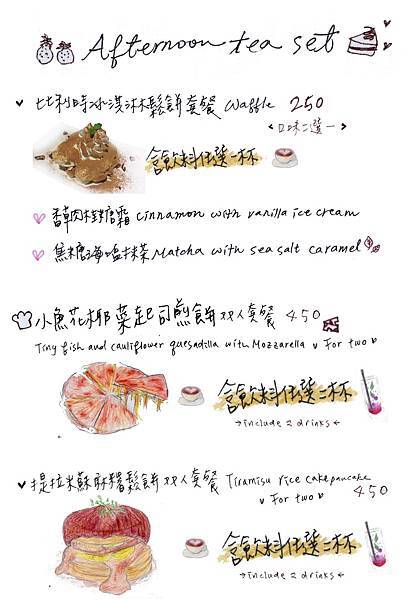 Afternoon tea set
比利時冰淇淋鬆餅套餐 Waffle 250
<口味二選一>
含飲料任選一杯
香草肉桂糖霜 cinnamon with vanilla ice cream
焦糖海鹽抹茶 Matcha with sea salt caramel
小魚花椰菜起司煎餅双人套餐 450
Tiny fish and cauliflower quesadilla with Mozzarella For two
含飲料任選二杯
→include 2 drinks←
提拉米蘇麻糬鬆餅双人套餐 Tiramisu rice cake pancake
For two 450
含飲料任選二杯
→include 2 drinks←